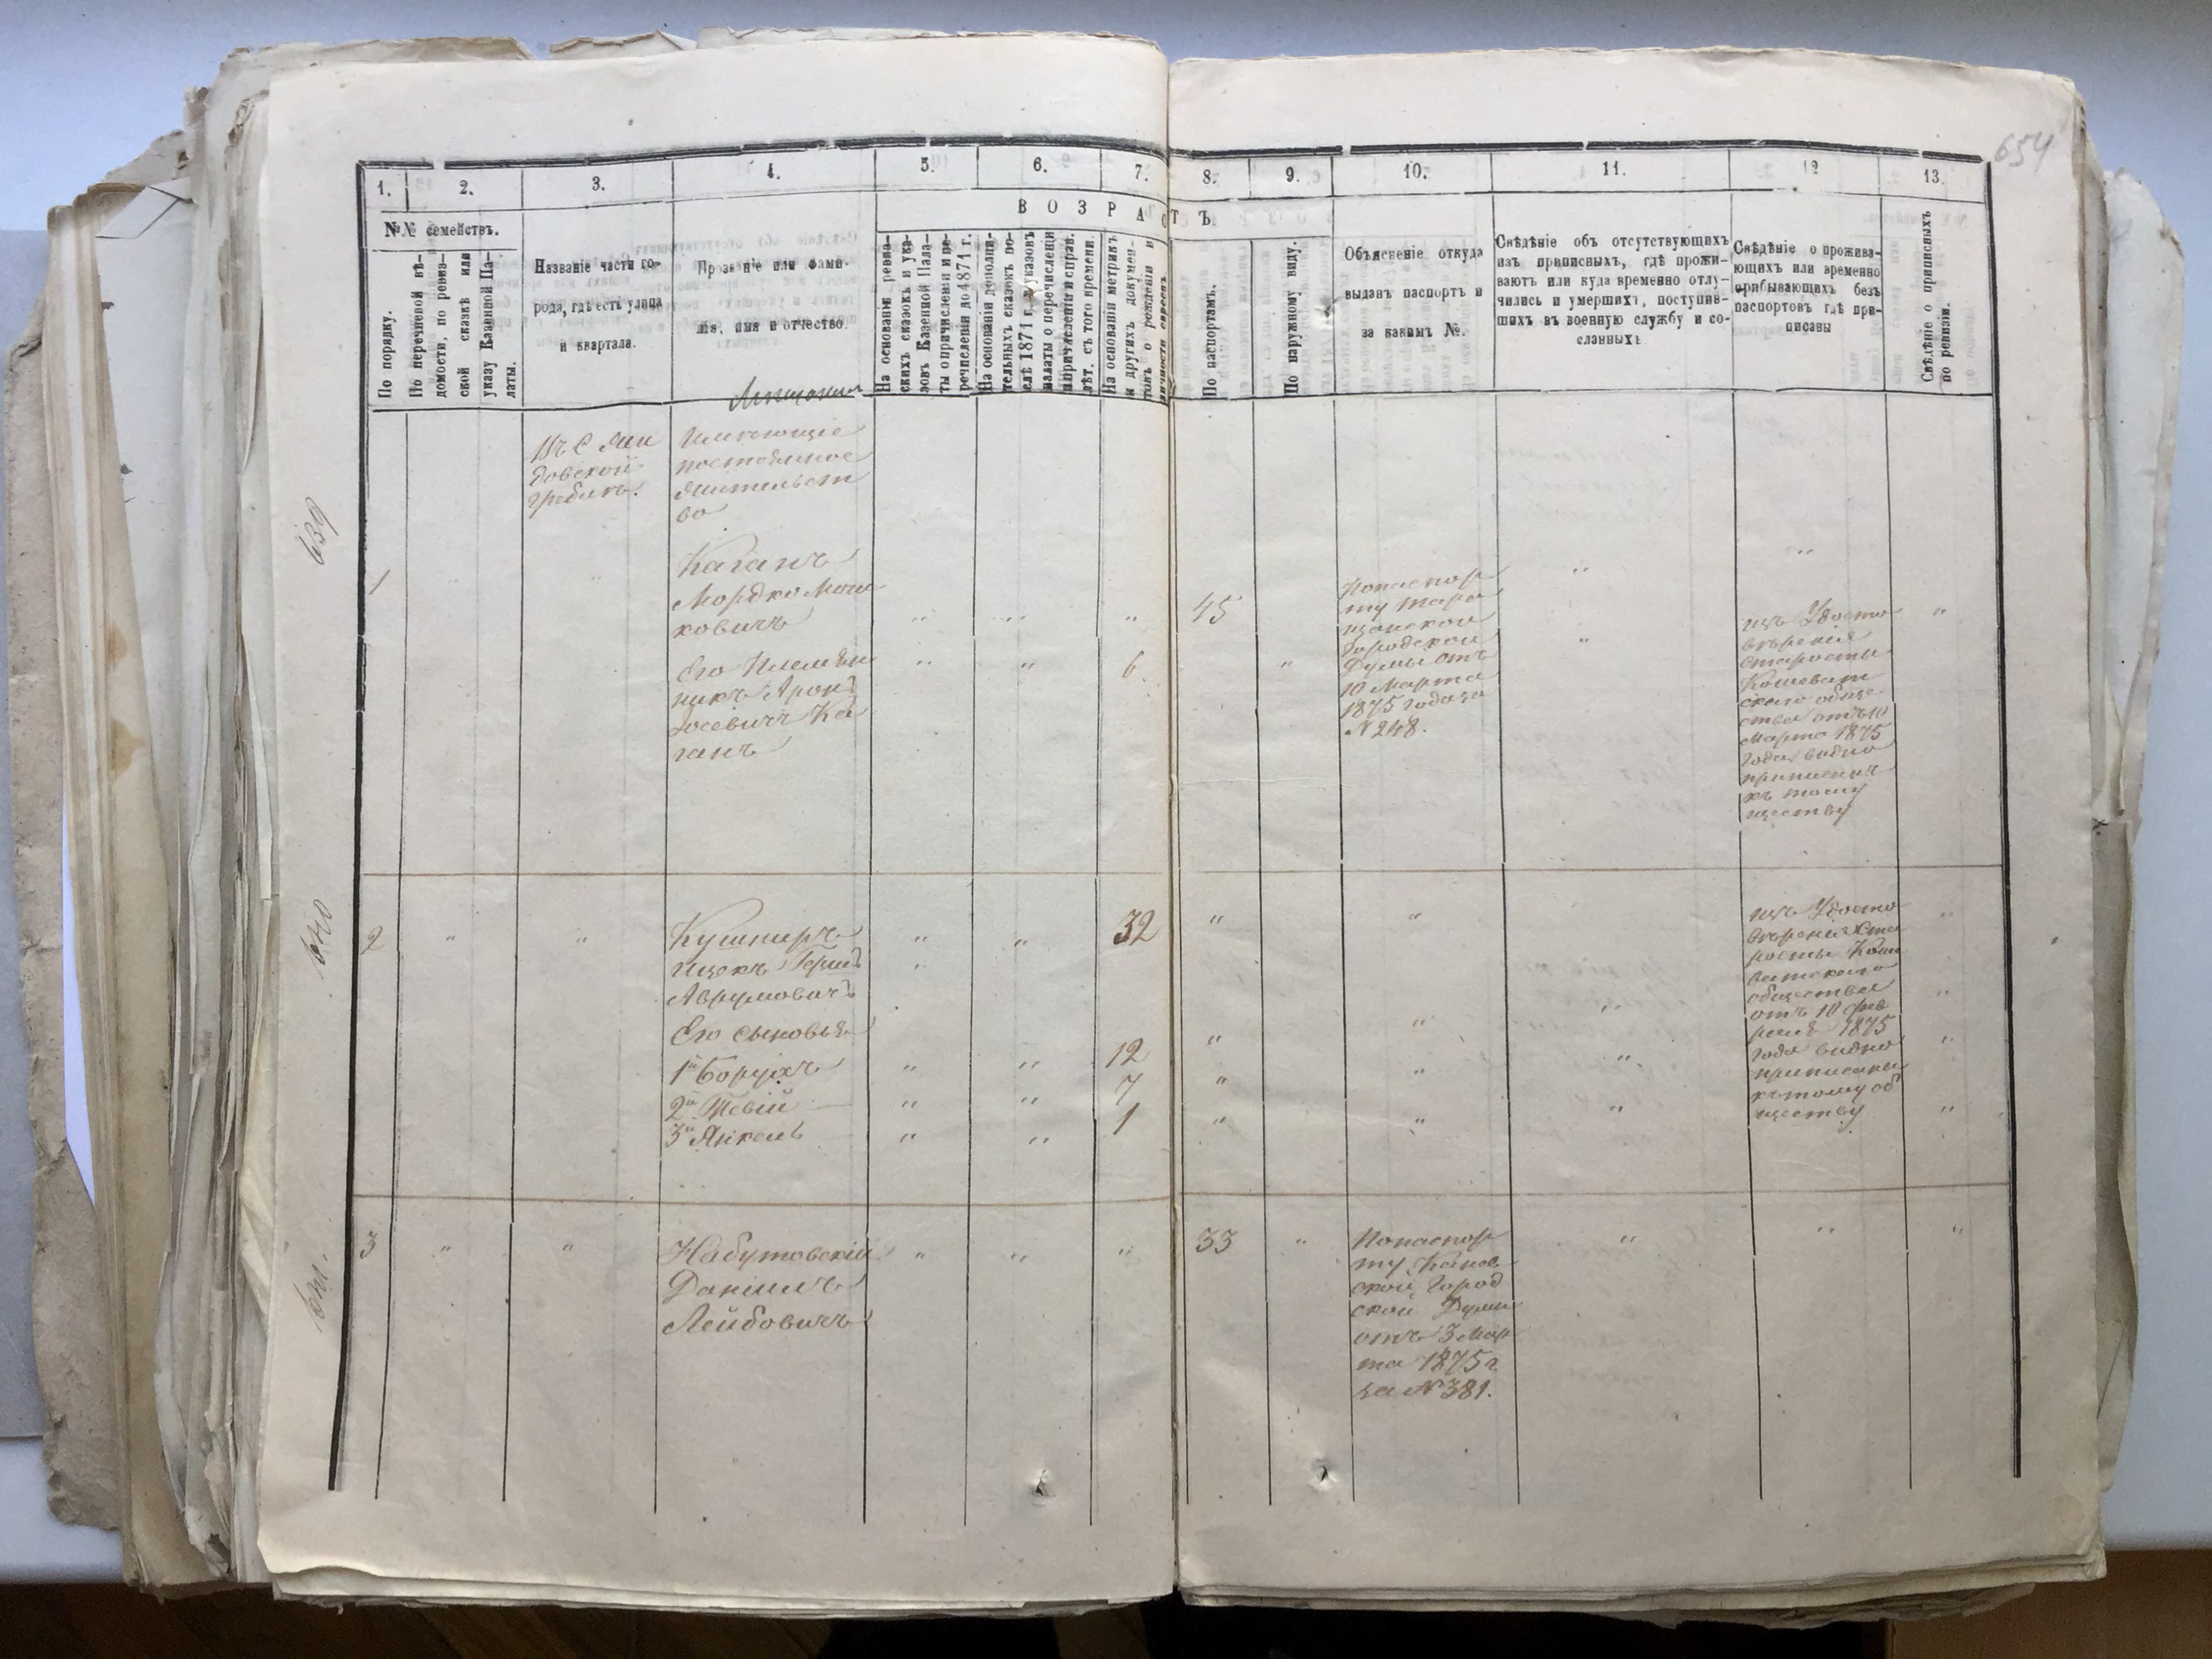 654
1.
2.
3.
4.
5.
6.
7.
8.
9.
10.
11.
12
13.
№№ семействъ.
ВОЗРАСТЪ
По порядку.
По перечневой вѣ-
домости, по ревиз-
ской сказкѣ или
указу Казенной Па-
латы.
Названіе части го-
рода, гдѣ есть улица
и квартала.
Прозваніе или фами-
лія, имя и отчество.
На основаніи ревиз-
скихъ сказокъ и ука-
зовъ Казенной Пала-
ты о причисленіи и пе-
речисленіи до 1871 г.
На основаніи дополни-
тельныхъ сказокъ по-
слѣ 1871 г. и указовъ
палаты о перечисленіи
и причисленіи и прав.
лѣт. съ того времени.
На основаніи метрикъ
и другихъ докумен-
товъ о рожденіи и
личности евреевъ
По паспортамъ.
По наружному виду.
Объясненіе откуда
выданъ паспортъ и
за какимъ №.
Свѣдѣніе объ отсутствующихъ
изъ приписныхъ, гдѣ прожи-
ваютъ или куда временно отлу-
чились и умершихъ, поступив-
шихъ въ военную службу и со-
сланныхъ
Свѣдѣніе о прожива-
ющихъ или временно
прибывающихъ безъ
паспортовъ гдѣ при-
писаны
Свѣдѣніе о приписныхъ
по ревизіи.
Въ С
довской
гребли.
Имѣющіе
постоянное
жительст
во
639
1
Каганъ
Мордко Мош
ковичъ
45
Попаспор
ту Тара
щанской
Городской
Думы отъ
10 Марта
1875 года за
№ 248.
Его Племян
никъ Аронъ
Іосевичъ Ка
ганъ
6
изъ Удосто
вѣренія
старосты
Кошеват
скаго обще
ства отъ 10
Марта 1875
года видно
приписанъ
къ тому
ществу
640
2
Кушниръ
Ицекъ Герш
Аврумовичъ
32
Его сыновья
1й Борухъ
12
2й Тевій
7
3й Янкель
1
изъ Удосто
вѣренія Ста
росты Коше
ватскаго
общества
отъ 10 Фев
раля 1875
года видно
приписаны
къ тому об
ществу
641.
3
Набутовскій
Даніилъ
Лейбовичъ
33
Попаспор
ту Канев
ской Город
ской Думы
отъ 3 Мар
та 1875 г
за № 381.